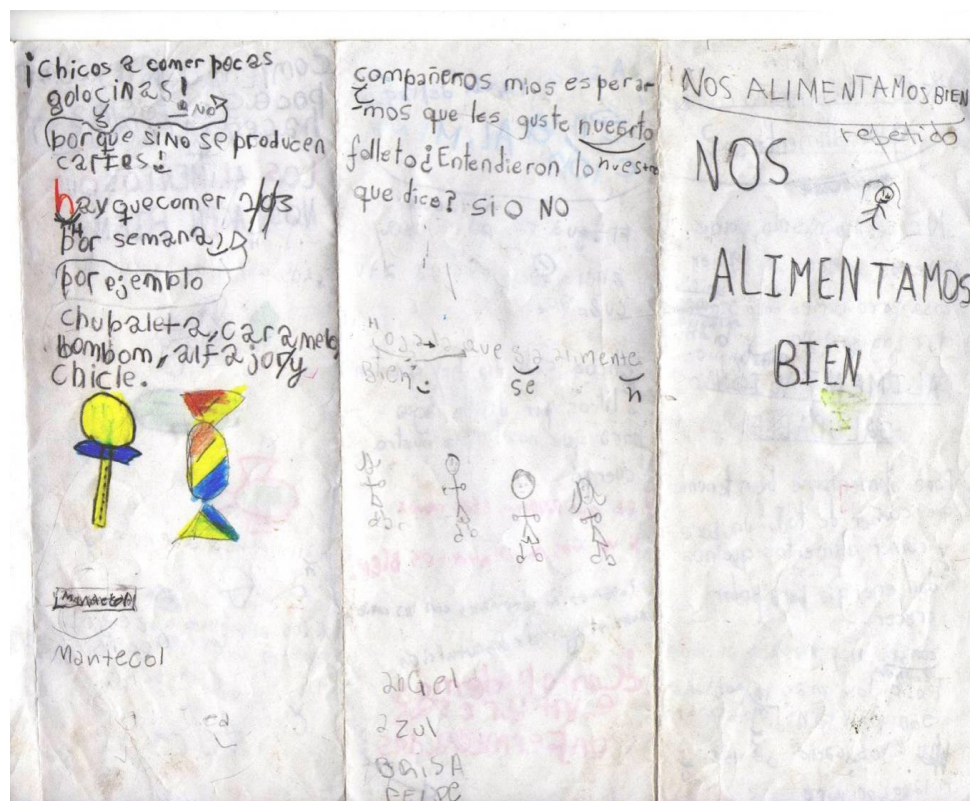 ¡Chicos a comer pocas
golocinas!
s
No
porque siNo se producen
caries!
hay que comer 2/03
H
por semana,
por ejemplo
chupaleta, caramelo
bombom, alfajor, y
chicle.
Mantecol
Mantecol
ea
compañeros mios espera
mos que les guste nuesrto
folleto ¿Entendieron lo nuestro
que dice? SI O NO
H
que sia alimente
Bien
se
n
angel
azul
BRISA
FELIPE
NOS ALIMENTAMOS BIEN
repetido
NOS
ALIMENTAMOS
BIEN